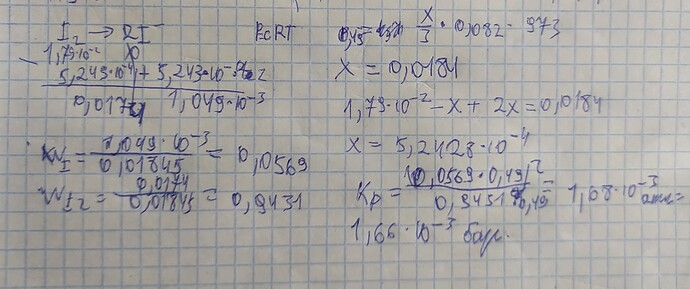 I₂ → 2I
PcRT
1,79·10⁻² 0
- 5,243·10⁻⁴ + 5,243·10⁻⁴·2
0,0174 1,049·10⁻³
N_I = 1,049·10⁻³ / 0,01845 = 0,0569
N_I₂ = 0,0174 / 0,01845 = 0,9431
0,49 = x/3 · 0,082 · 973
x = 0,0184
1,79·10⁻² - x + 2x = 0,0184
x = 5,2428·10⁻⁴
Kp = (0,0569·0,49)² / 0,9431·0,49 = 1,68·10⁻³ атм =
1,66·10⁻³ бар.